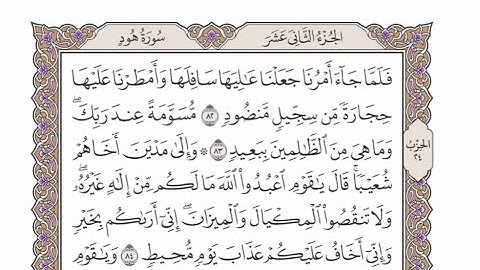 الجُزْءُ الثَّانِي عَشَرَ
سُورَةُ هُودٍ
فَلَمَّا جَآءَ أَمْرُنَا جَعَلْنَا عَٰلِيَهَا سَافِلَهَا وَأَمْطَرْنَا عَلَيْهَا
حِجَارَةً مِّن سِجِّيلٍ مَّنضُودٍ ٨٢ مُّسَوَّمَةً عِندَ رَبِّكَۖ
وَمَا هِيَ مِنَ ٱلظَّٰلِمِينَ بِبَعِيدٍ ٨٣ ۞ وَإِلَىٰ مَدْيَنَ أَخَاهُمْ
شُعَيْبًاۚ قَالَ يَٰقَوْمِ ٱعْبُدُوا۟ ٱللَّهَ مَا لَكُم مِّنْ إِلَٰهٍ غَيْرُهُۥۖ
وَلَا تَنقُصُوا۟ ٱلْمِكْيَالَ وَٱلْمِيزَانَۖ إِنِّيٓ أَرَىٰكُم بِخَيْرٍ
وَإِنِّيٓ أَخَافُ عَلَيْكُمْ عَذَابَ يَوْمٍ مُّحِيطٍ ٨٤ وَيَٰقَوْمِ
الحِزْبُ
٢٤